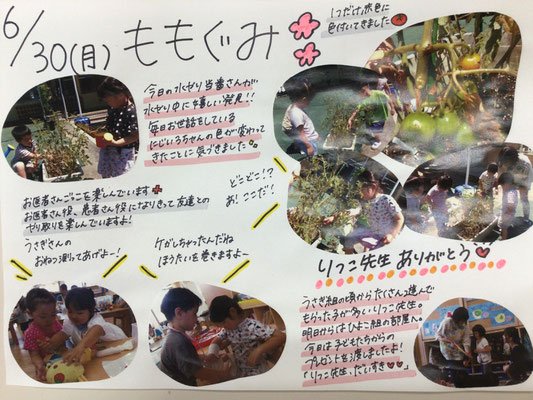 6/30(月) ももぐみ
1つだけ赤色に
色付いてきました
今日の水やり当番さんが
水やり中に嬉しい発見!!
毎日お世話をしている
にじいろちゃんの色が変わって
きたことに気づきました
どこどこ!?
あ!ここだ!
お医者さんごっこを楽しんでいます
お医者さん役、患者さん役になりきって友達との
やり取りを楽しんでいますよ!
うさぎさんの
おねつ測ってあげよー!
ケガしちゃったんだね
ほうたいを巻きますよ~
りつこ先生ありがとう
うさぎ組の頃からたくさん遊んで
もらった子が多いりつこ先生。
明日からはひよこ組の部屋へ。
今日は子どもたちからの
プレゼントを渡しましたよ!
「りつこ先生、だいすき♡♡」